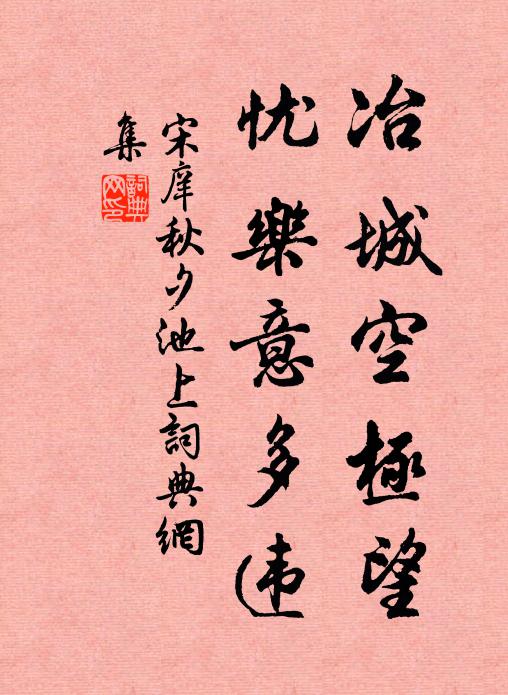 冶城空極望
忧樂意多违
宋庠秋夕池上詞典網
集
詞典网印